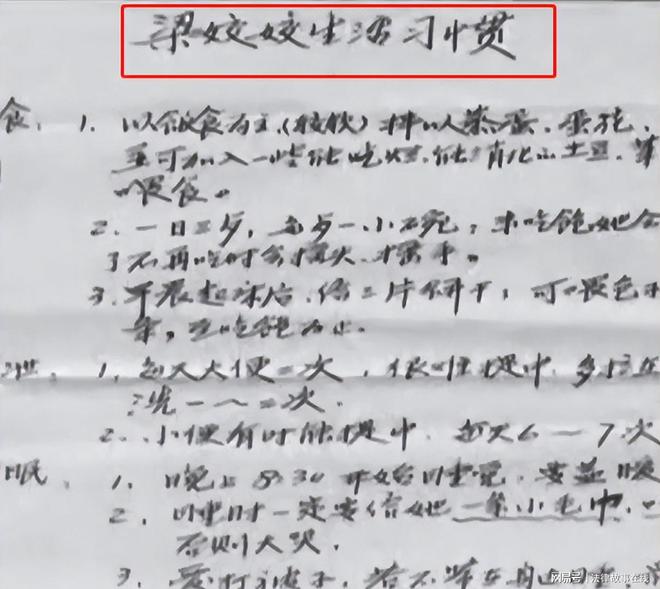 梁姣姣生活习惯
食、1. 以饮食为主(较软)拌以蒸蛋、蛋花、
至可加入一些能吃烂、能消化的土豆、
喂食。
2. 一日三歺,每歺一小不碗,未吃饱她会
了不再吃时会摇头、摆手。
3. 早晨起床后,给二片饼干,可喂
条,至吃饱为止。
1. 每天大便二次,很难提中,多拉在
洗一~二次.
2. 小便有时能提中,每天6—7次
眠、1. 晚上8:30开始睡觉,要盖暖
2. 睡时一定要给她一条小毛巾,
否则大哭.
3. 爱打被子,若不
网易号 | 法律故事在线